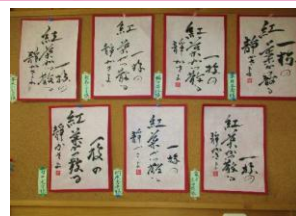 一枝の
紅葉かつ散る
静かさよ
一枝の
紅葉かつ散る
静かさよ
一枝の
紅葉かつ散る
静かさよ
一枝の
紅葉かつ散る
静かさよ
一枝の
紅葉かつ散る
静かさよ
一枝の
紅葉かつ散る
静かさよ
一枝の
紅葉かつ散る
静かさよ